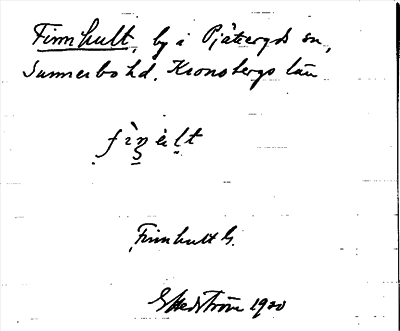 Finnhult, by i Pjätteryds sn,
Sunnerbo hd, Kronobergs län
Finnhult G.
GHedström 1920